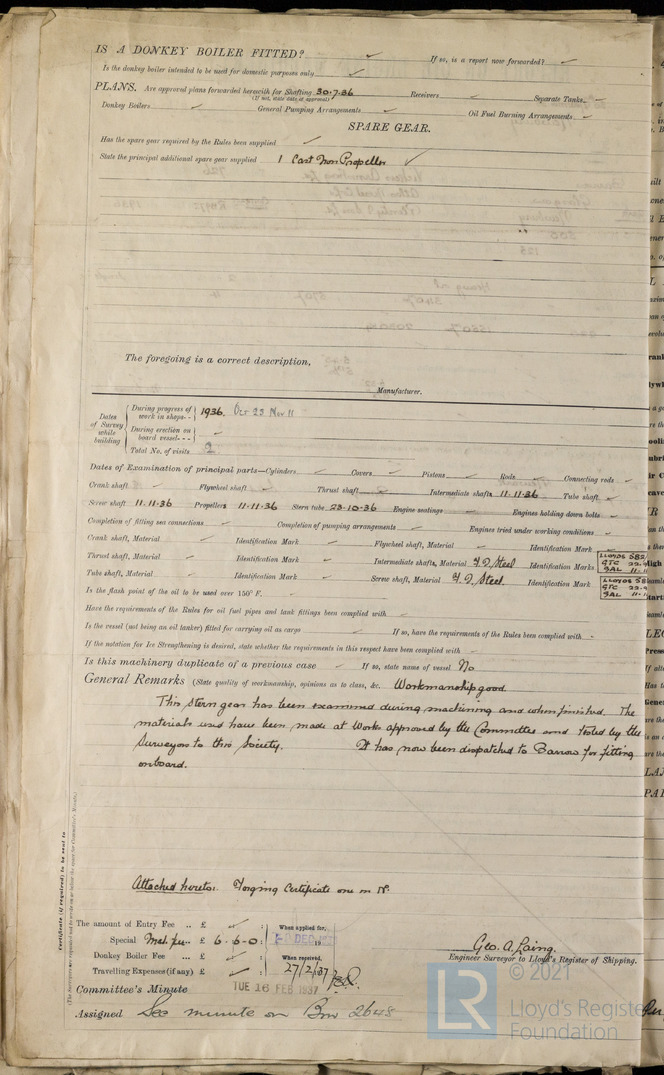 IS A DONKEY BOILER FITTED? ✓ If so, is a report now forwarded? ✓
Is the donkey boiler intended to be used for domestic purposes only ✓
PLANS. Are approved plans forwarded herewith for Shafting 30.7.36 Receivers ✓ Separate Tanks ✓
(If not, state date of approval)
Donkey Boilers ✓ General Pumping Arrangements ✓ Oil Fuel Burning Arrangements ✓
SPARE GEAR.
Has the spare gear required by the Rules been supplied ✓
State the principal additional spare gear supplied 1 Cast Iron Propeller ✓
The foregoing is a correct description,
Manufacturer.
Dates of Survey while building
During progress of work in shops - - 1936. Oct 23 Nov 11
During erection on board vessel - - - ✓
Total No. of visits 2
Dates of Examination of principal parts—Cylinders ✓ Covers ✓ Pistons ✓ Rods ✓ Connecting rods ✓
Crank shaft ✓ Flywheel shaft ✓ Thrust shaft ✓ Intermediate shafts 11.11.36 Tube shaft ✓
Screw shaft 11.11.36 Propellers 11.11.36 Stern tube 23.10.36 Engine seatings ✓ Engines holding down bolts ✓
Completion of fitting sea connections ✓ Completion of pumping arrangements ✓ Engines tried under working conditions ✓
Crank shaft, Material ✓ Identification Mark ✓ Flywheel shaft, Material ✓ Identification Mark ✓
Thrust shaft, Material ✓ Identification Mark ✓ Intermediate shafts, Material F.I. Steel Identification Marks LLOYDS 582
GTC 22.9
GAL 11.11
Tube shaft, Material ✓ Identification Mark ✓ Screw shaft, Material F.I. Steel Identification Mark LLOYDS 58
GTC 22.9
GAL 11.11
Is the flash point of the oil to be used over 150° F. ✓
Have the requirements of the Rules for oil fuel pipes and tank fittings been complied with ✓
Is the vessel (not being an oil tanker) fitted for carrying oil as cargo ✓ If so, have the requirements of the Rules been complied with ✓
If the notation for Ice Strengthening is desired, state whether the requirements in this respect have been complied with ✓
Is this machinery duplicate of a previous case ✓ If so, state name of vessel No
General Remarks (State quality of workmanship, opinions as to class, &c. Workmanship good
This stern gear has been examined during machining and when finished. The
materials used have been made at Works approved by the Committee and tested by the
Surveyors to this Society. It has now been dispatched to Barrow for fitting
onboard.
Attached hereto: Forging Certificate one in No.
Certificate (if required) to be sent to
(The Surveyors are requested not to write on or below the space for Committee's Minute.)
The amount of Entry Fee .. £ ✓ : When applied for,
Special £ 6-6-0 : DEC 19
Donkey Boiler Fee ... £ ✓ : When received,
Travelling Expenses (if any) £ ✓ : 27/2/37
Geo. A. Laing.
Engineer Surveyor to Lloyd's Register of Shipping.
Committee's Minute TUE 16 FEB 1937
Assigned See minute on Bm 2648
LR
© 2021
Lloyd's Register
Foundation